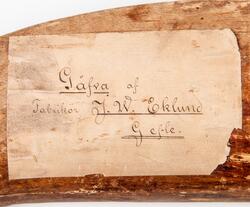 Gåfva af
Fabrikör J. W. Eklund
Gefle.